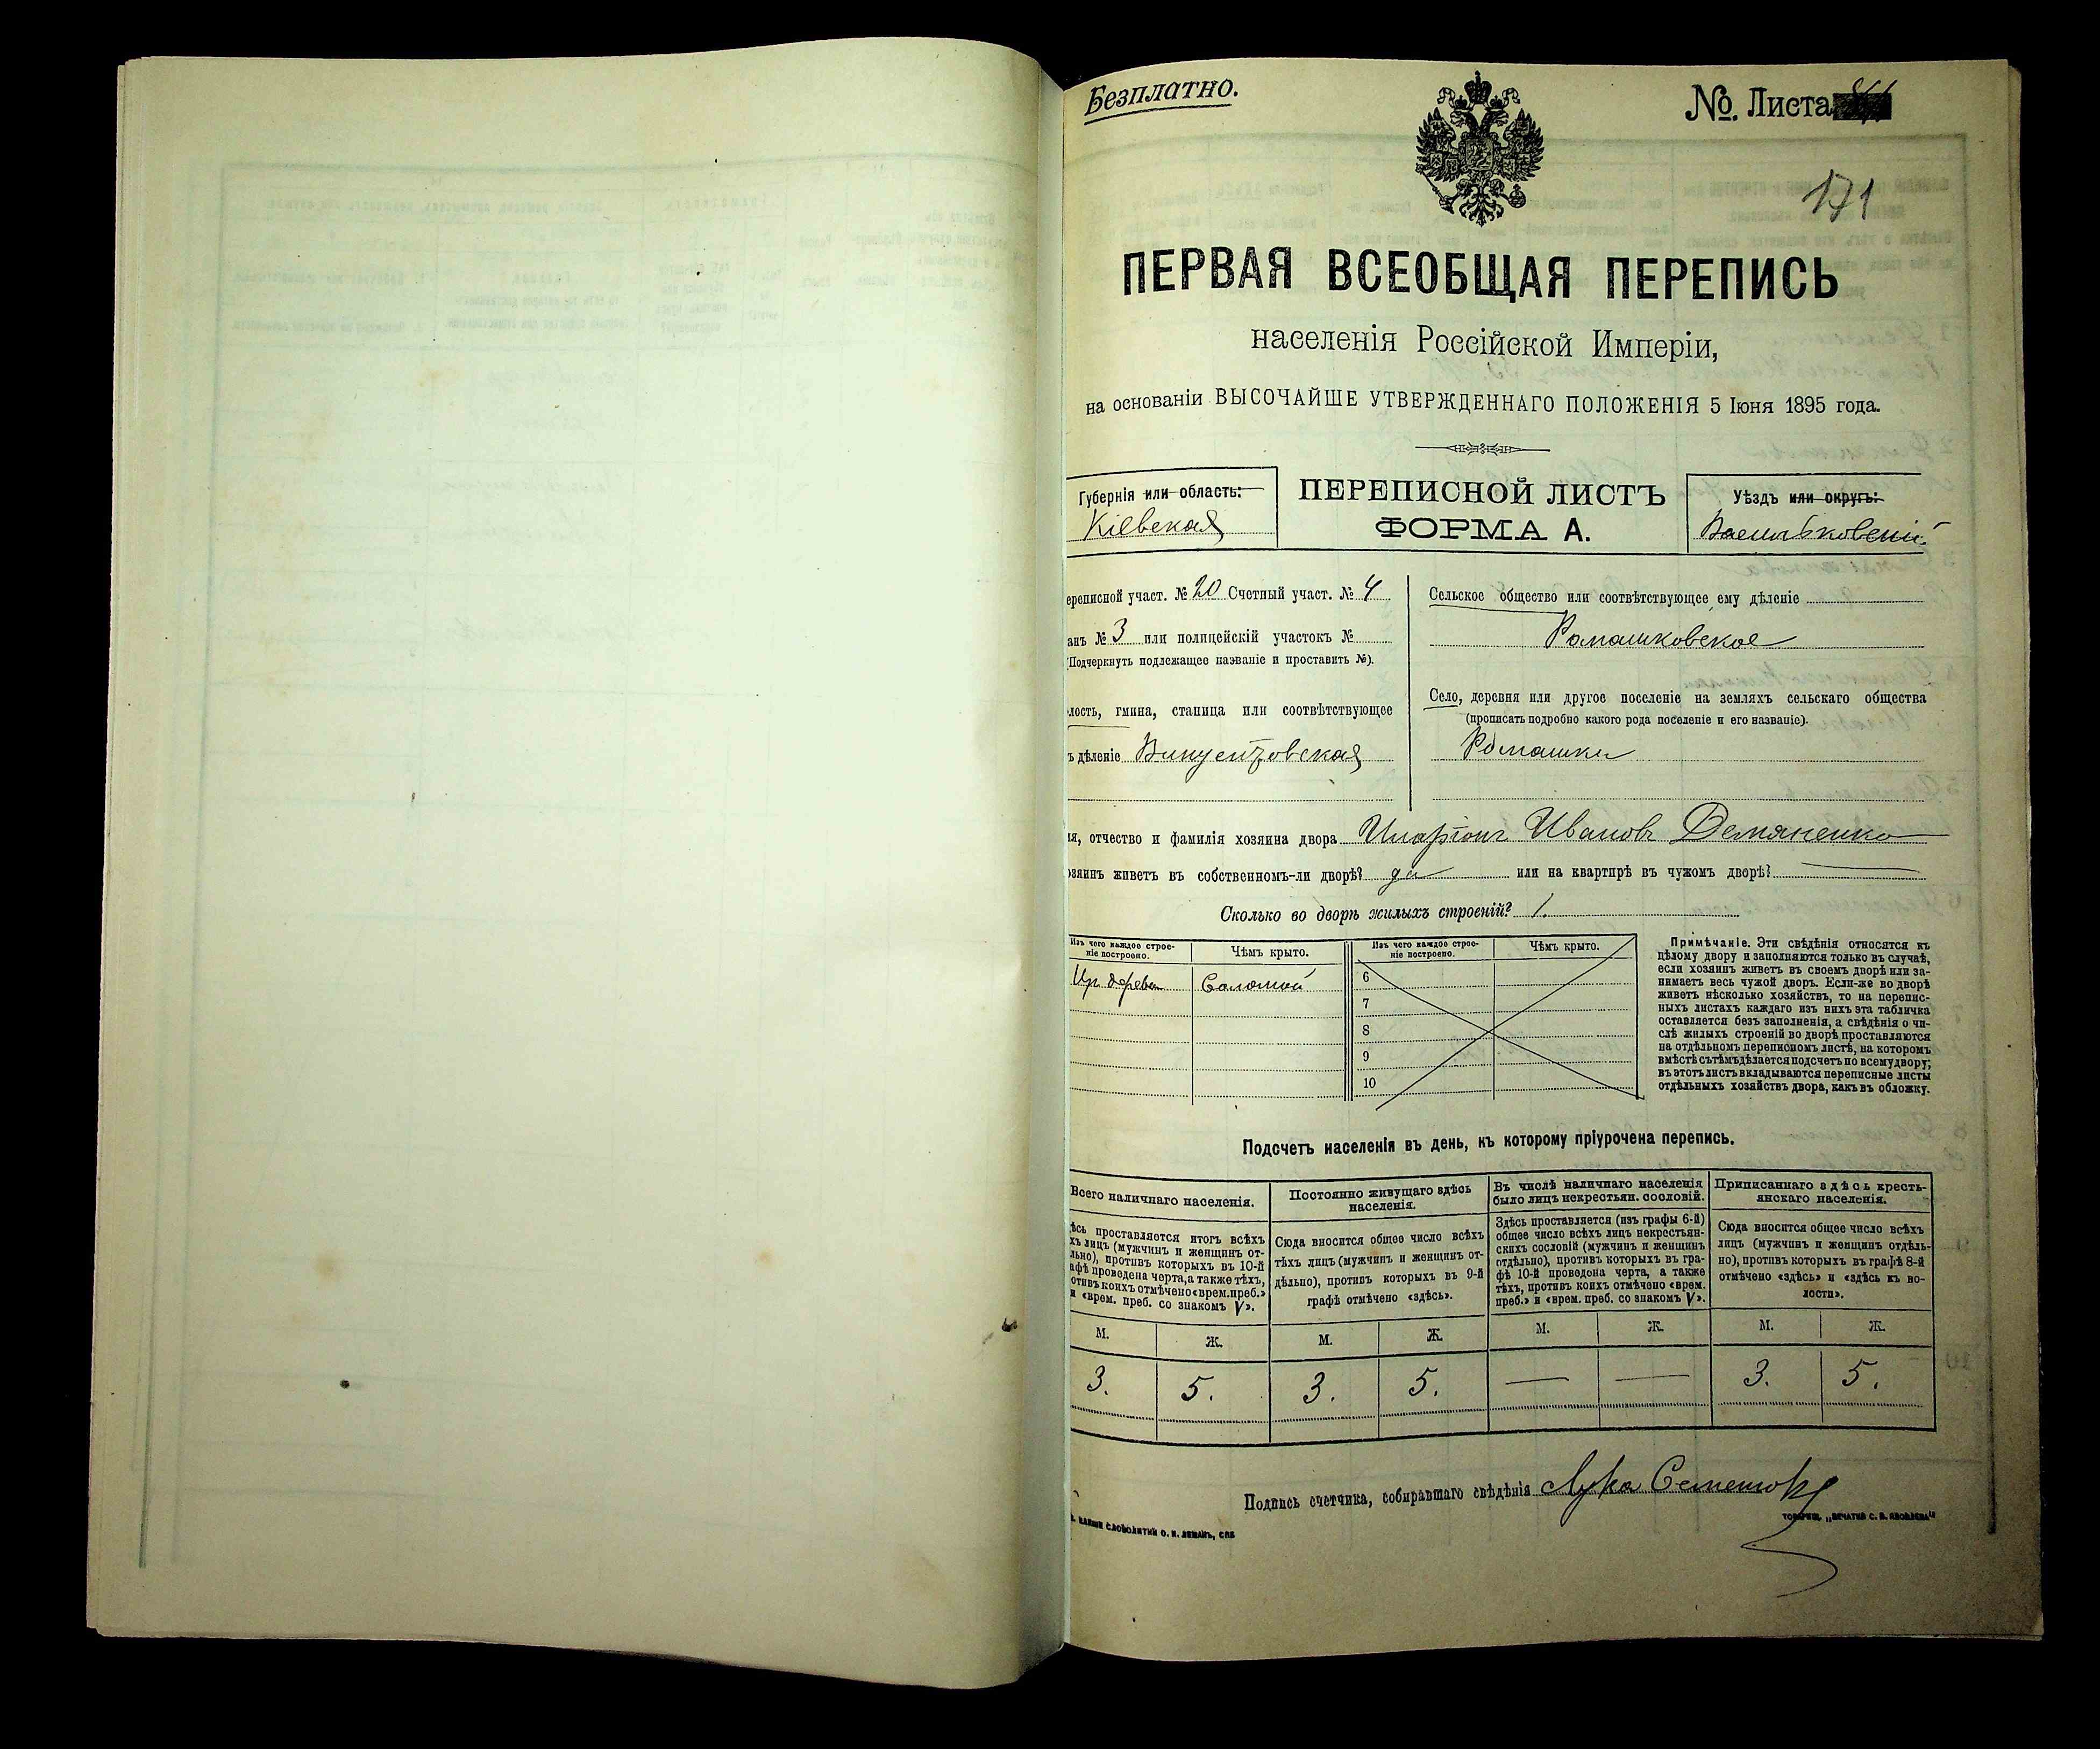 Безплатно.
№. Листа
171
ПЕРВАЯ ВСЕОБЩАЯ ПЕРЕПИСЬ
населенія Россійской Имперіи,
на основаніи ВЫСОЧАЙШЕ УТВЕРЖДЕННАГО ПОЛОЖЕНІЯ 5 Іюня 1895 года.
Губернія или область:
Кіевская
ПЕРЕПИСНОЙ ЛИСТЪ
ФОРМА А.
Уѣздъ или округъ:
Васильковскій
ереписной участ. № 20 Счетный участ. № 4
анъ № 3 или полицейскій участокъ №
(Подчеркнуть подлежащее названіе и проставить №).
лость, гмина, станица или соотвѣтствующее
ъ дѣленіе Винцентовская
Сельское общество или соотвѣтствующее ему дѣленіе
Ромашковское
Село, деревня или другое поселеніе на земляхъ сельскаго общества
(прописать подробно какого рода поселеніе и его названіе).
Ромашки
я, отчество и фамилія хозяина двора Иларіонъ Ивановъ Демяненко
озяинъ живетъ въ собственномъ-ли дворѣ? да или на квартирѣ въ чужомъ дворѣ?
Сколько во дворѣ жилыхъ строеній? 1.
Изъ чего каждое строе-
ніе построено.
Чѣмъ крыто.
Изъ чего каждое строе-
ніе построено.
Чѣмъ крыто.
дерева Соломой
6
7
8
9
10
Примѣчаніе. Эти свѣдѣнія относятся къ
цѣлому двору и заполняются только въ случаѣ,
если хозяинъ живетъ въ своемъ дворѣ или за-
нимаетъ весь чужой дворъ. Если-же во дворѣ
живетъ нѣсколько хозяйствъ, то на перепис-
ныхъ листахъ каждаго изъ нихъ эта табличка
оставляется безъ заполненія, а свѣдѣнія о чи-
слѣ жилыхъ строеній во дворѣ проставляются
на отдѣльномъ переписномъ листѣ, на которомъ
вмѣстѣ съ тѣмъ дѣлается подсчетъ по всему двору;
въ этотъ листъ вкладываются переписные листы
отдѣльныхъ хозяйствъ двора, какъ въ обложку.
Подсчетъ населенія въ день, къ которому пріурочена перепись.
Всего наличнаго населенія.
ѣсь проставляется итогъ всѣхъ
хъ лицъ (мужчинъ и женщинъ от-
льно), противъ которыхъ въ 10-й
афѣ проведена черта, а также тѣхъ,
отивъ коихъ отмѣчено «врем. преб.»
и «врем. преб. со знакомъ V».
Постоянно живущаго здѣсь
населенія.
Сюда вносится общее число всѣхъ
тѣхъ лицъ (мужчинъ и женщинъ от-
дѣльно), противъ которыхъ въ 9-й
графѣ отмѣчено «здѣсь».
Въ числѣ наличнаго населенія
было лицъ некрестьян. сословій.
Здѣсь проставляется (изъ графы 6-й)
общее число всѣхъ лицъ некрестьян-
скихъ сословій (мужчинъ и женщинъ
отдѣльно), противъ которыхъ въ гра-
фѣ 10-й проведена черта, а также
тѣхъ, противъ коихъ отмѣчено «врем.
преб.» и «врем. преб. со знакомъ V».
Приписаннаго здѣсь кресть-
янскаго населенія.
Сюда вносится общее число всѣхъ
лицъ (мужчинъ и женщинъ отдѣль-
но), противъ которыхъ въ графѣ 8-й
отмѣчено «здѣсь» и «здѣсь къ во-
лости».
М. Ж. М. Ж. М. Ж. М. Ж.
3. 5. 3. 5. — — 3. 5.
Подпись счетчика, собиравшаго свѣдѣнія Лука
СЛОВОЛИТНИ О. И. ЛЕМАНЪ, СПБ
ТОВАРИЩ. „ПЕЧАТНЯ С. П. ЯКОВЛЕВА"